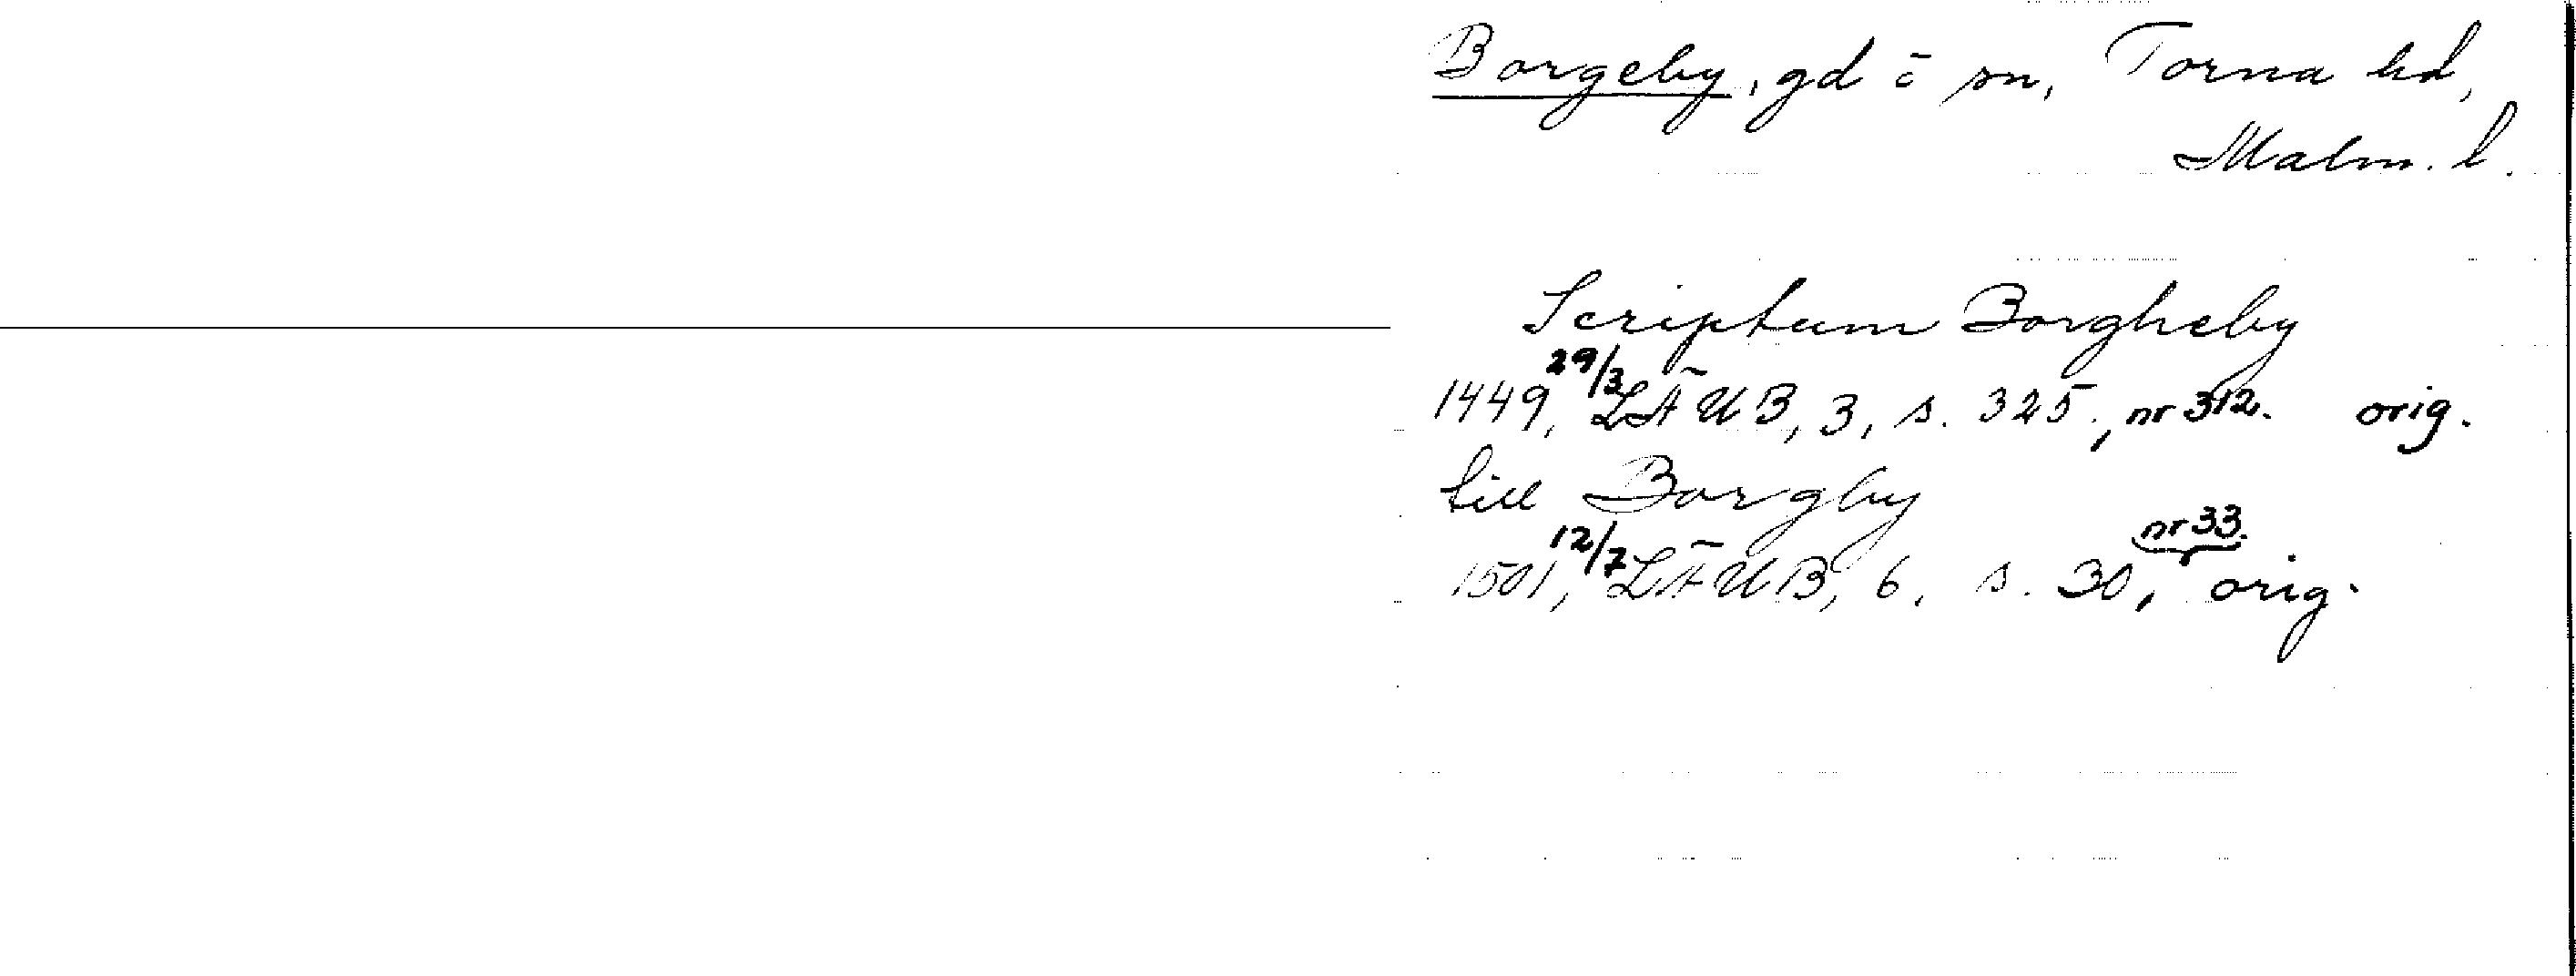 Borgeby, gd o sn, Torna hd,
Malm. l.
Scriptum Borgheby
1449, 29/3 LÄUB, 3, s. 325., nr 312. orig.
till Borgby
1501, 12/7 LÄUB, 6, s. 30, nr 33. orig.